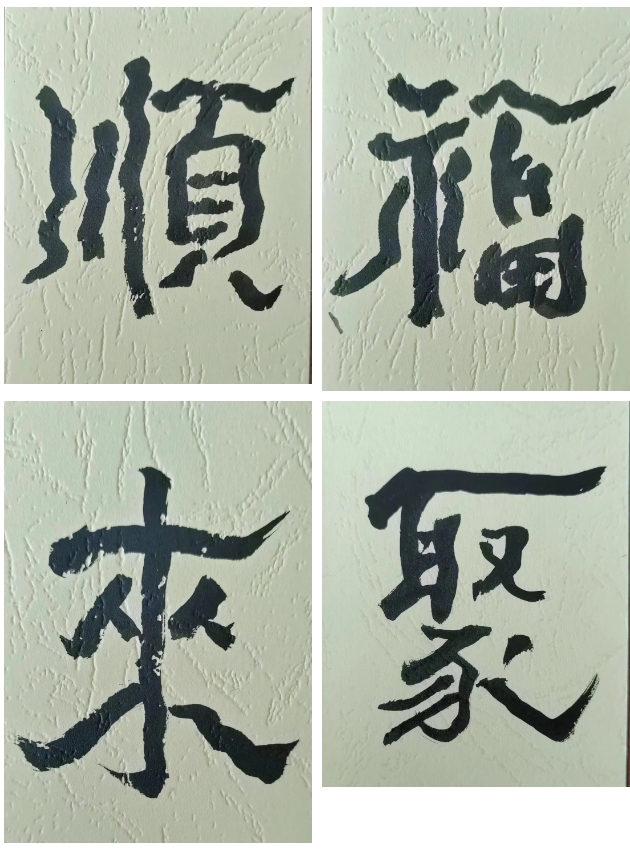 順福
來聚